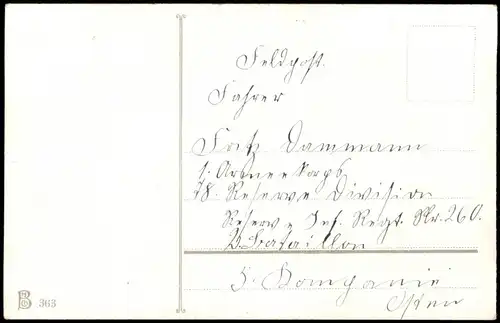 Feldpost.
Fahrer
Fritz Dammann
1. Armee Korps
78. Reserve Division
Reserve Inf. Regt. Nr. 260.
2. Bataillon
5. Kompanie
Osten
B 363